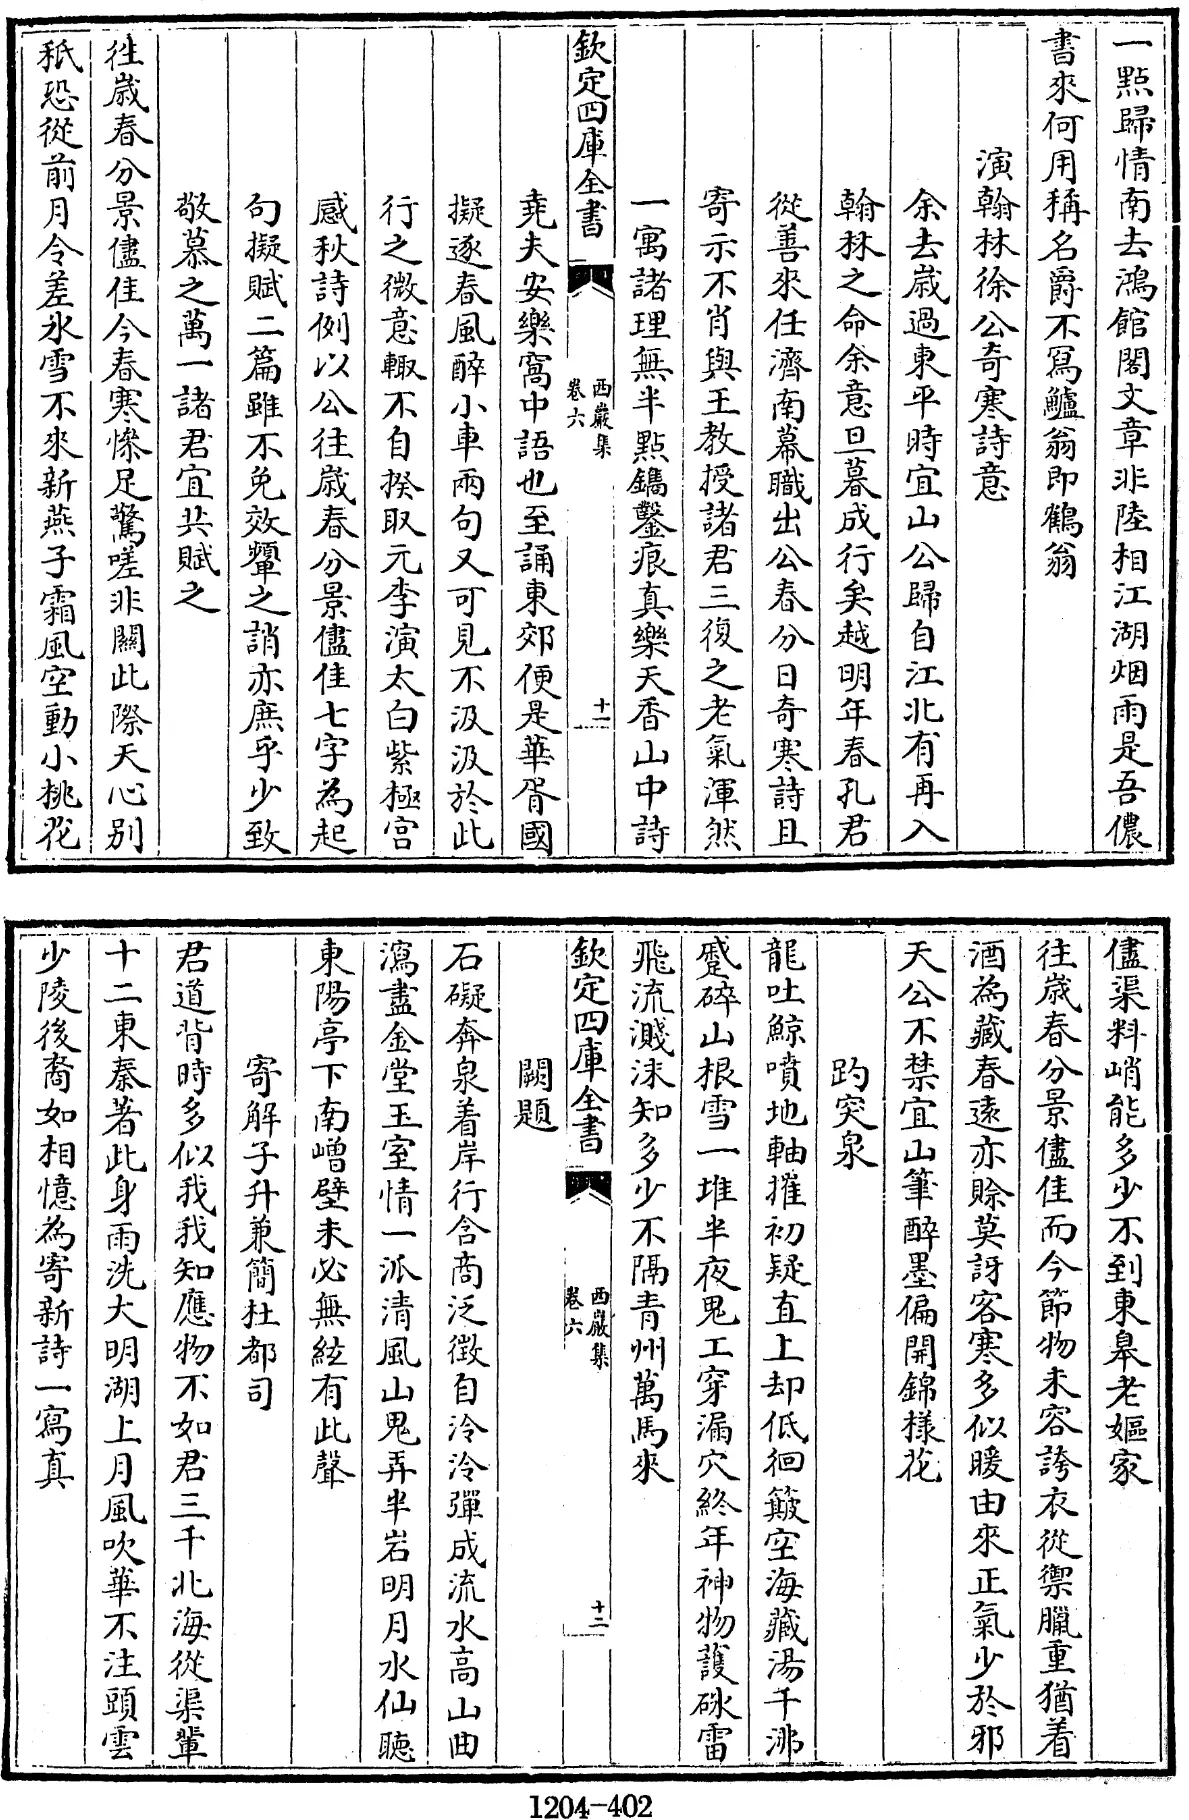 一點歸情南去鴻館閣文章非陸相江湖烟雨是吾儂
書來何用稱名爵不寫鱸翁即鶴翁
演翰林徐公奇寒詩意
余去歳過東平時宜山公歸自江北有再入
翰林之命余意旦暮成行矣越明年春孔君
從善來任濟南幕職出公春分日奇寒詩且
寄示不肖與王教授諸君三復之老氣渾然
一寓諸理無半點鐫鑿痕真樂天香山中詩
欽定四庫全書
西巖集
卷六
十一
堯夫安樂窩中語也至誦東郊便是華胥國
擬逐春風醉小車兩句又可見不汲汲於此
行之微意輙不自揆取元李演太白紫極宫
感秋詩例以公往歳春分景儘佳七字為起
句擬賦二篇雖不免效顰之誚亦庶乎少致
敬慕之萬一諸君宜共賦之
往歳春分景儘佳今春寒慘足驚嗟非闗此際天心别
秪恐從前月令差氷雪不來新燕子霜風空動小桃花
儘渠料峭能多少不到東皐老嫗家
往歳春分景儘佳而今節物未容誇衣從禦臘重猶着
酒為藏春遠亦賒莫訝客寒多似暖由來正氣少於邪
天公不禁宜山筆醉墨偏開錦様花
趵突泉
龍吐鯨噴地軸摧初疑直上却低徊簸空海藏湯千沸
蹙碎山根雪一堆半夜鬼工穿漏穴終年神物護砅雷
飛流濺沫知多少不隔青州萬馬來
欽定四庫全書
西巖集
卷六
十二
闕題
石礙奔泉着岸行含商泛徴自泠泠彈成流水高山曲
瀉盡金堂玉室情一派清風山鬼弄半岩明月水仙聽
東陽亭下南嶒壁未必無絃有此聲
寄解子升兼簡杜都司
君道背時多似我我知應物不如君三千北海從渠輩
十二東秦著此身雨洗大明湖上月風吹華不注頭雲
少陵後裔如相憶為寄新詩一寫真
1204-402